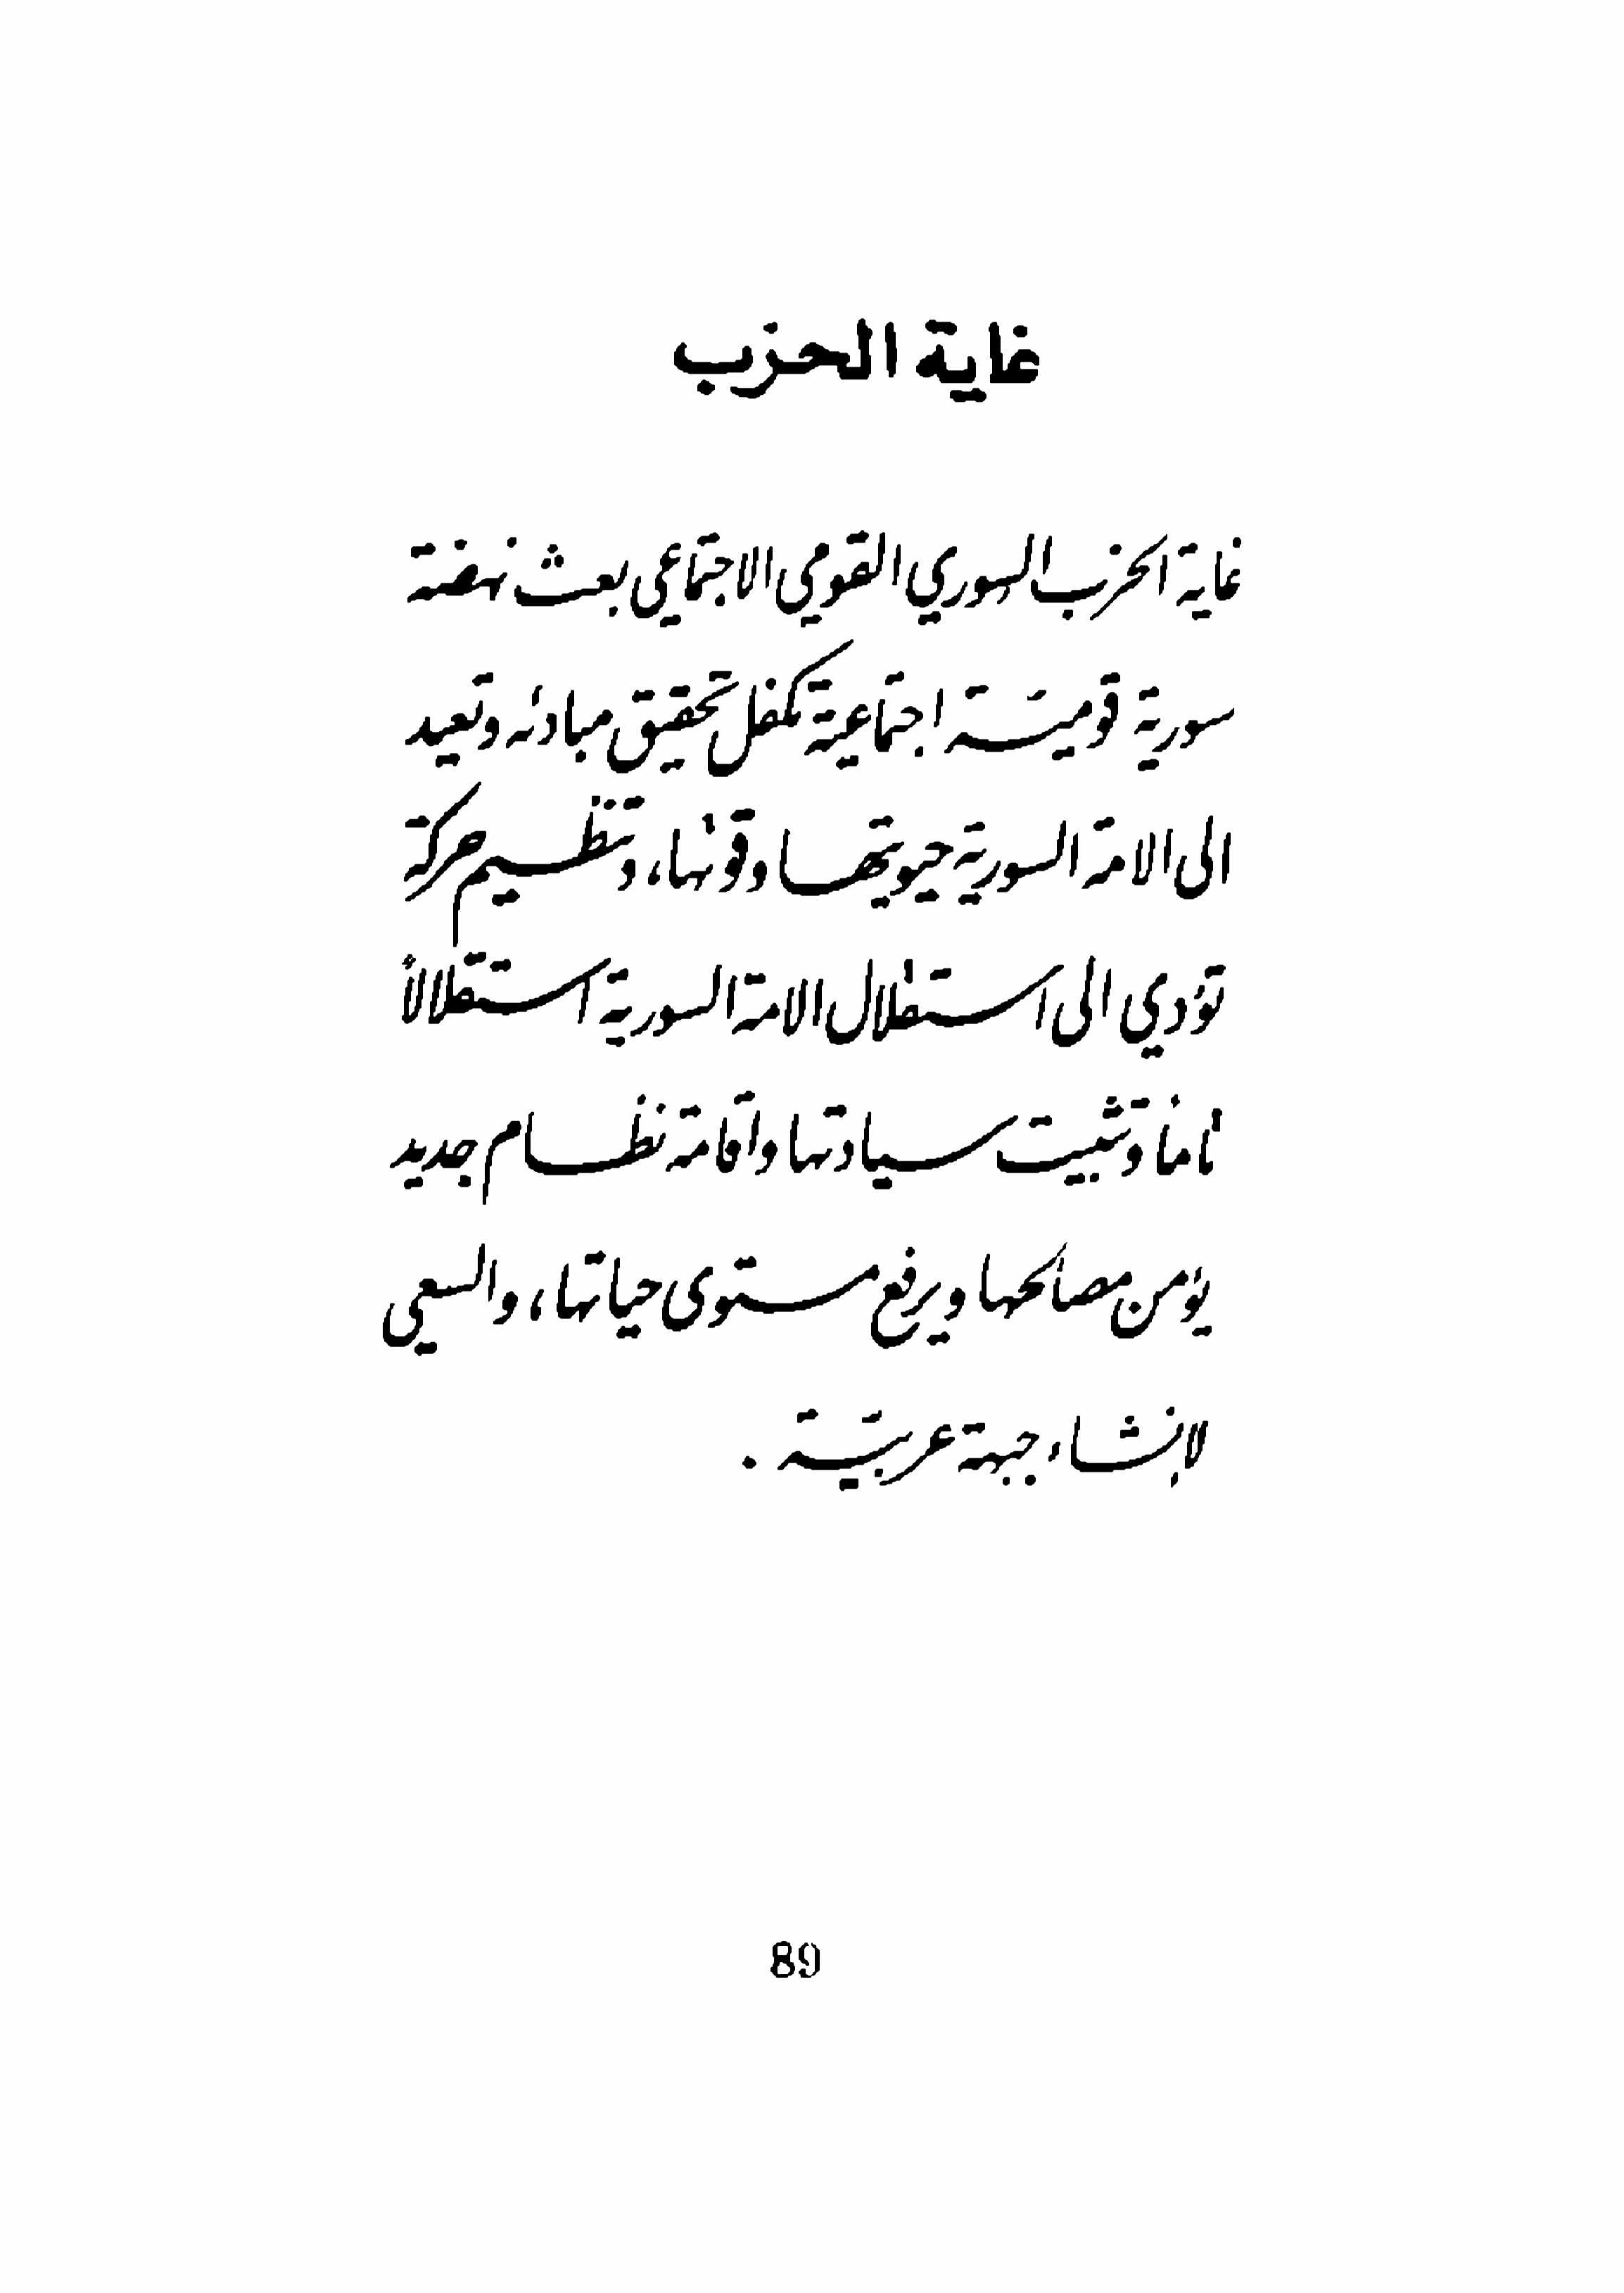 غاية الحزب
غاية الحزب السوري القومي الاجتماعي بعث نهضة
سورية قوميّة اجتماعية تكفل تحقيق مبادئه وتعيد
الى الامة السورية حيويتها وقوتها، وتنظيم حركة
تؤدي الى استقلال الامة السورية استقلالاً
تاماً وتثبيت سيادتها واقامة نظام جديد
يؤمن مصالحها ويرفع مستوى حياتها، والسعي
لإنشاء جبهة عربيّة .
89